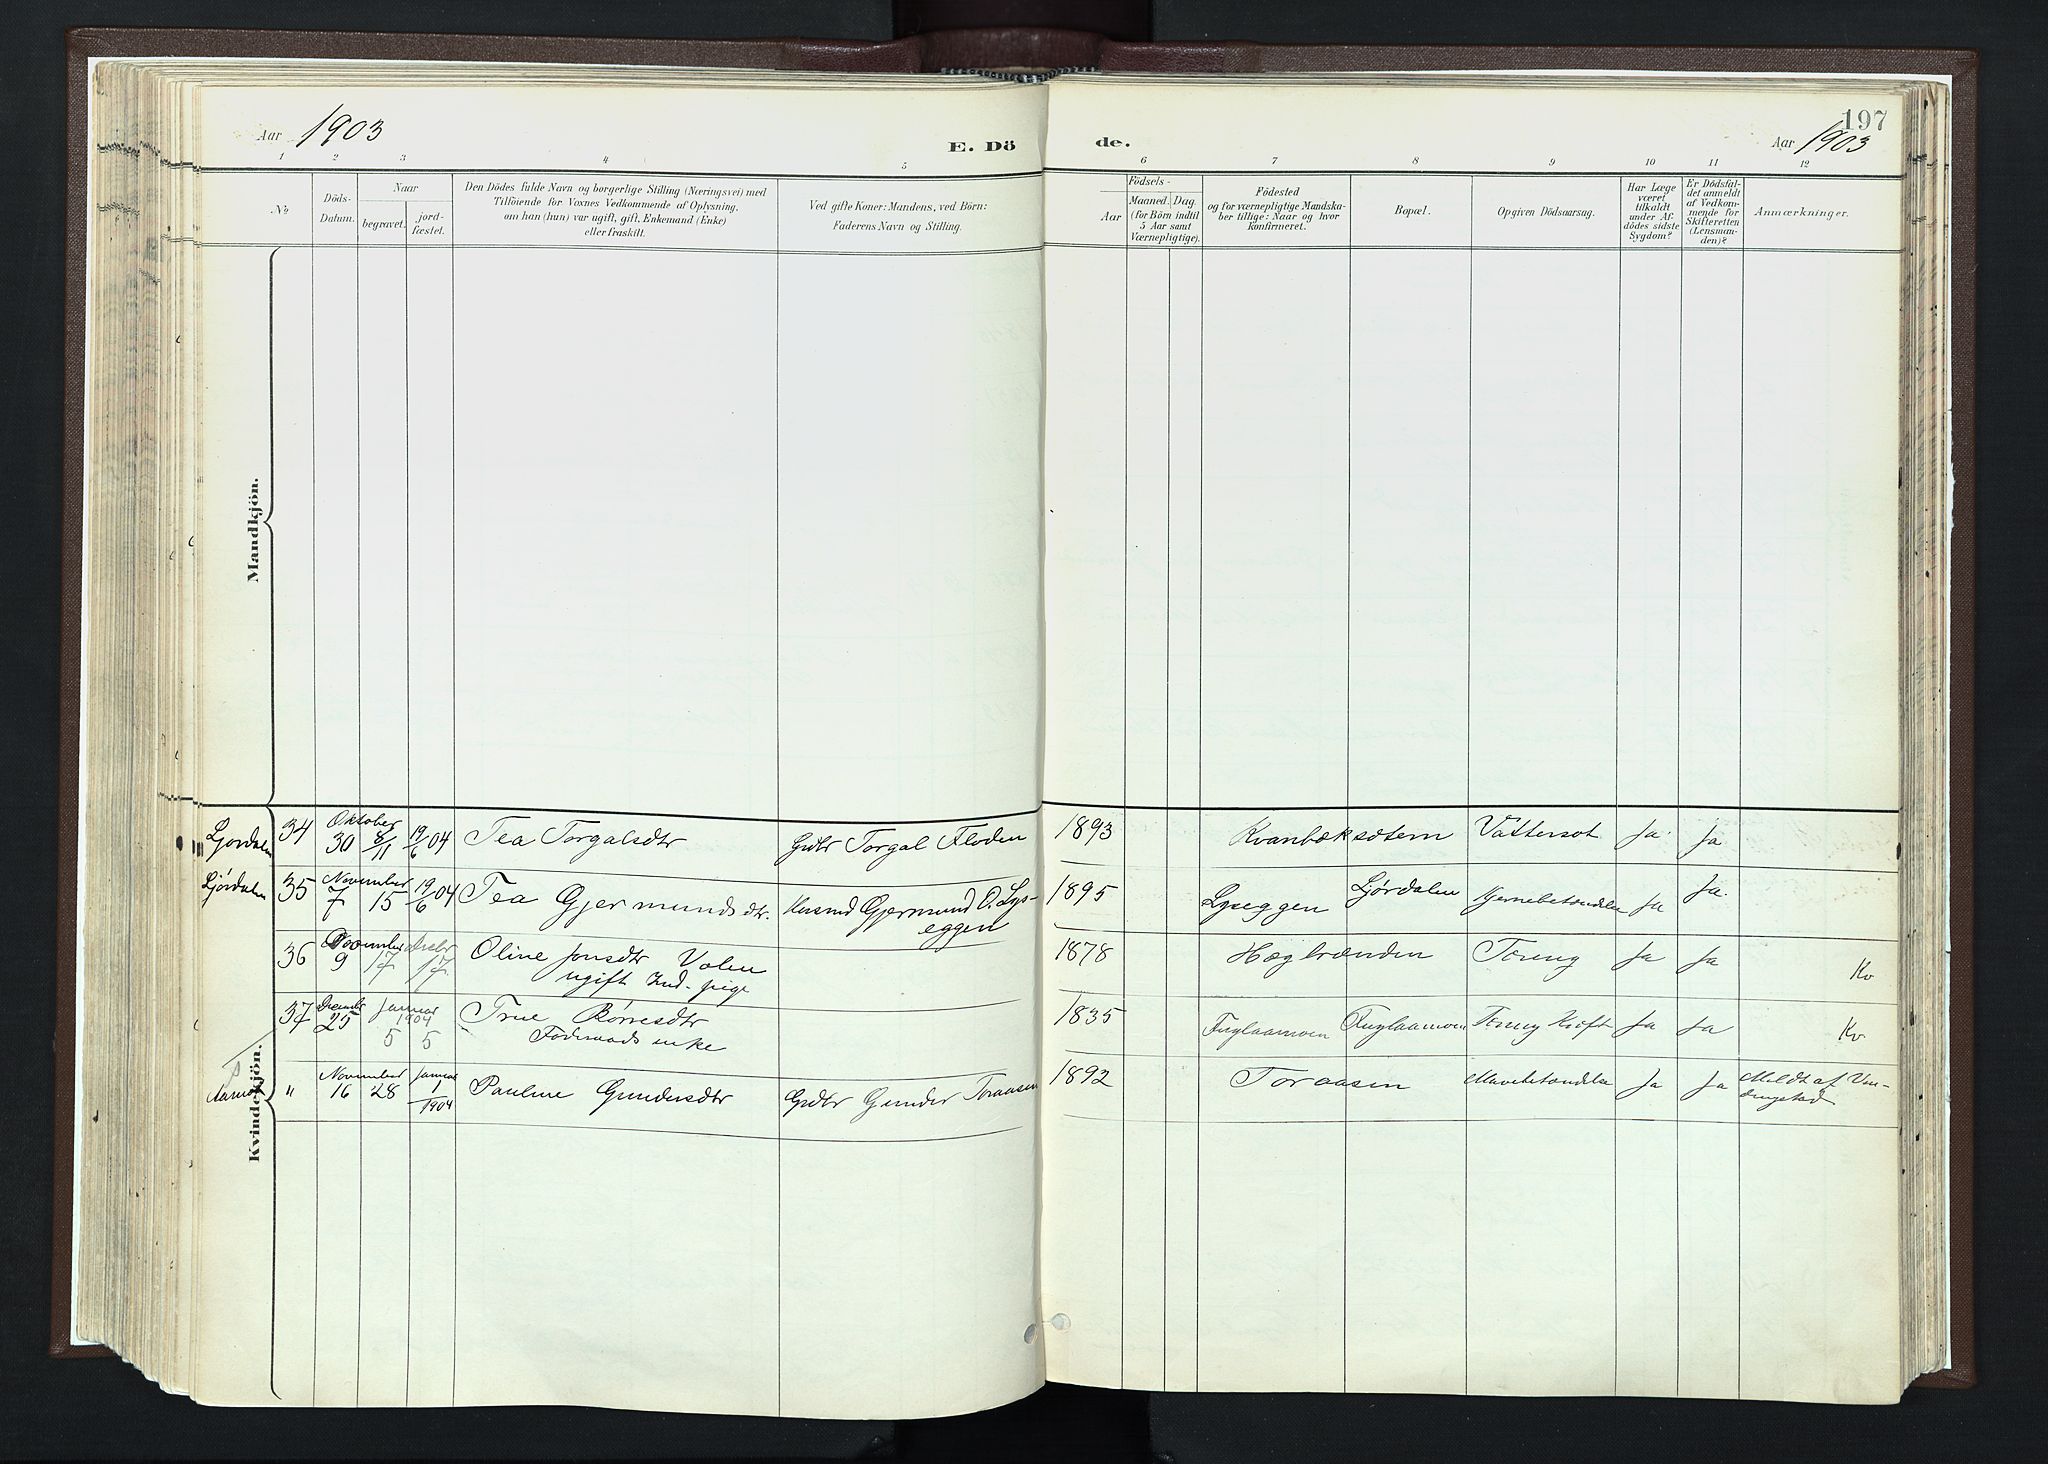 Aar 1903
E. Dö
de.
197
Aar 1903
1 2 3 4 5 6 7 8 9 10 11 12
No
Döds-
Datum.
Naar
begravet.
jord-
fæstet.
Den Dödes fulde Navn og borgerlige Stilling (Næringsvei) med
Tilföiende for Voxnes Vedkommende af Oplysning,
om han (hun) var ugift, gift, Enkemand (Enke)
eller fraskilt.
Ved gifte Koner: Mandens, ved Börn:
Faderens Navn og Stilling.
Aar
Födsels-
Maaned. Dag.
(for Börn indtil
5 Aar samt
Værnepligtige).
Födested
og for værnepligtige Mandska-
ber tillige: Naar og hvor
konfirmeret.
Bopæl.
Opgiven Dödsaarsag.
Har Læge
været
tilkaldt
under Af-
dödes sidste
Sygdom?
Er Dödsfal-
det anmeldt
af Vedkom-
mende for
Skifteretten
(Lensman-
den)?
Anmærkninger.
Mandkjön.
Ljordalen 34 Oktober 30 8/11 19/6 04 Tea Torgalsdtr Grdbr Torgal Floden 1893 Kvanbæksætern Vattersot Ja Ja
Ljørdalen 35 November 7 15 19/6 04 Tea Gjermundsdtr. Husmd Gjermund O. Lys-
eggen 1895 Lyseggen Ljørdalen Hjernebetændelse Ja Ja
36 November 9 17 17 Oline Jonsdtr Volen
ugift Ind. pige 1878 Hægbrænden Tæring Ja Ja Kv
37 December 25 Januar 1904 5 5 Børresdtr
Føderaads enke 1835 Fuglaamoen Fuglaamoen Kræft Ja Ja Kv
Kvindekjön.
" November 16 28 Januar 1/1904 Pauline Gundersdtr Grdbr Gunder Toraasen 1892 Toraasen Mavebetændelse Ja Ja Meldt af